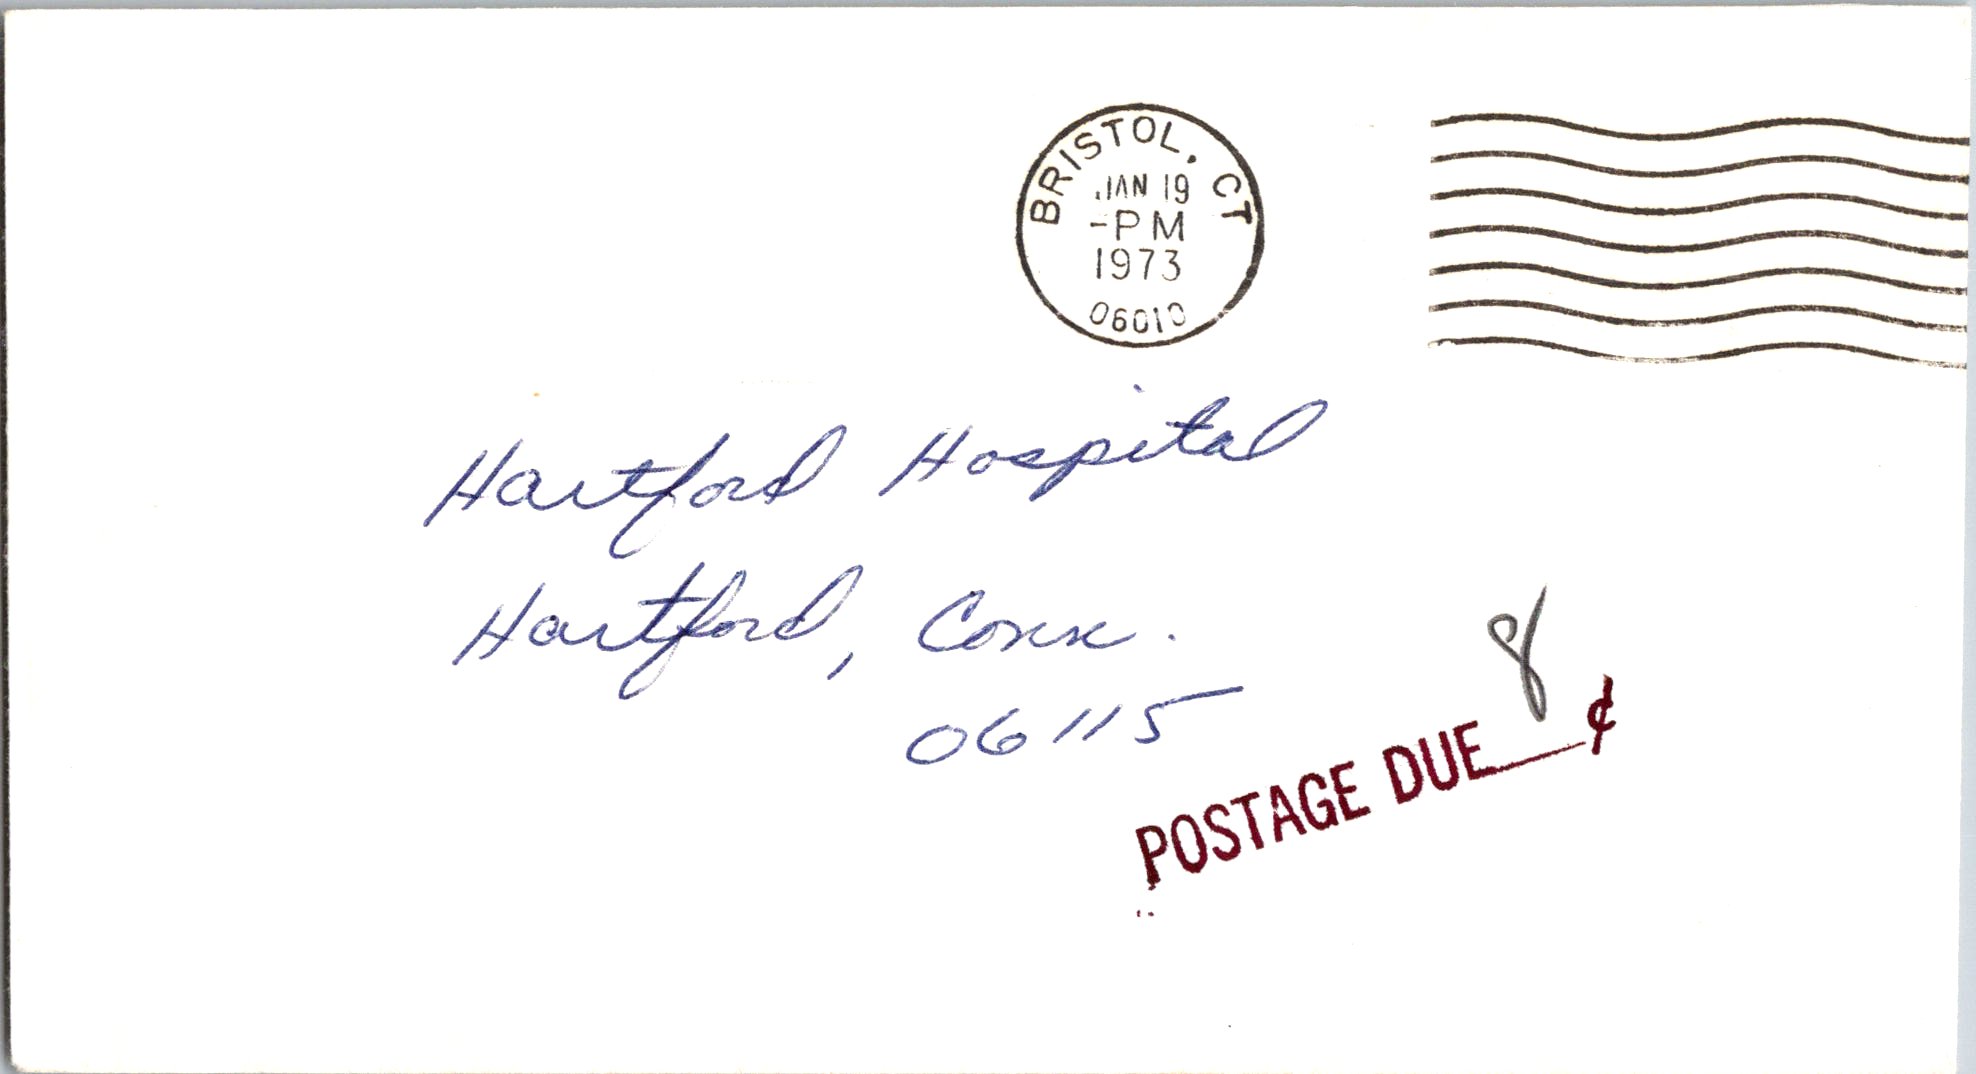 BRISTOL, CT
JAN 19
-PM
1973
06010
Hartford Hospital
Hartford, Conn.
06115
8
POSTAGE DUE ___¢